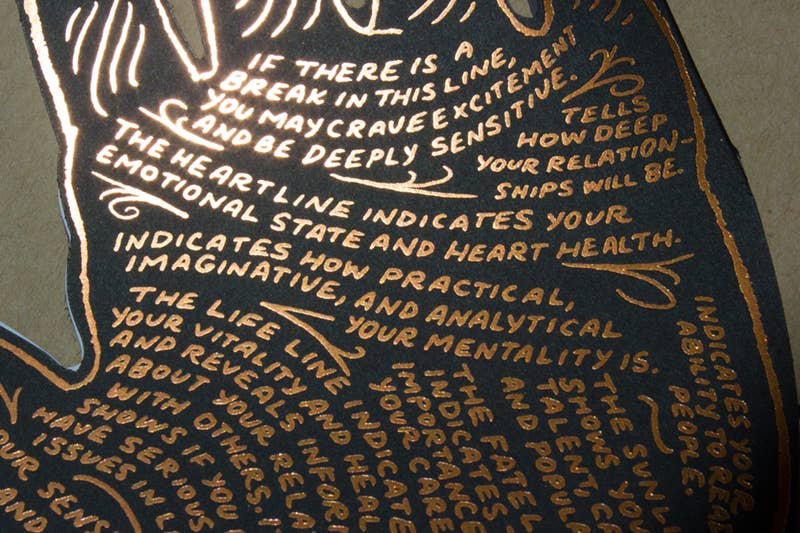 IF THERE IS A
BREAK IN THIS LINE,
YOU MAY CRAVE EXCITEMENT
AND BE DEEPLY SENSITIVE.
TELLS
HOW DEEP
YOUR RELATION-
SHIPS WILL BE.
THE HEART LINE INDICATES YOUR
EMOTIONAL STATE AND HEART HEALTH.
INDICATES HOW PRACTICAL,
IMAGINATIVE, AND ANALYTICAL
YOUR MENTALITY IS.
THE LIFE LINE INDICATE
YOUR VITALITY AND HEALT
AND REVEALS INFOR
ABOUT YOUR RELA
WITH OTHERS.
SHOWS IF YOU
HAVE SERIOUS
ISSUES IN
OUR SENS
AND
THE FATE L
INDICATES
IMPORTANCE
YOUR CARE
THE SUN LI
SHOWS YOU
TALENT, C
AND POPU
INDICATES YOUR
ABILITY TO REA
PEOPLE.